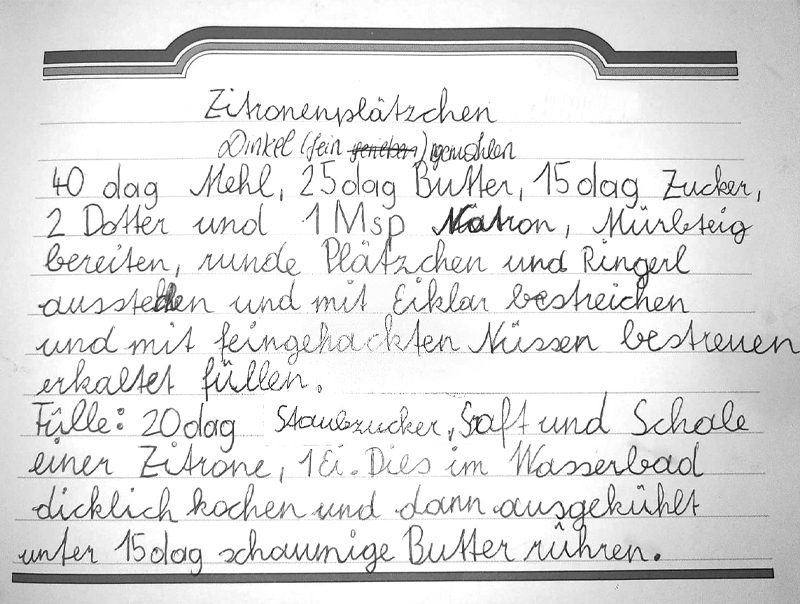 Zitronenplätzchen
Dinkel (fein gerieben) gemahlen
40 dag Mehl, 25 dag Butter, 15 dag Zucker,
2 Dotter und 1 Msp Natron, Mürbteig
bereiten, runde Plätzchen und Ringerl
ausstechen und mit Eiklar bestreichen
und mit feingehackten Nüssen bestreuen
erkaltet füllen.
Fülle: 20 dag Staubzucker, Saft und Schale
einer Zitrone, 1 Ei. Dies im Wasserbad
dicklich kochen und dann ausgekühlt
unter 15 dag schaumige Butter rühren.